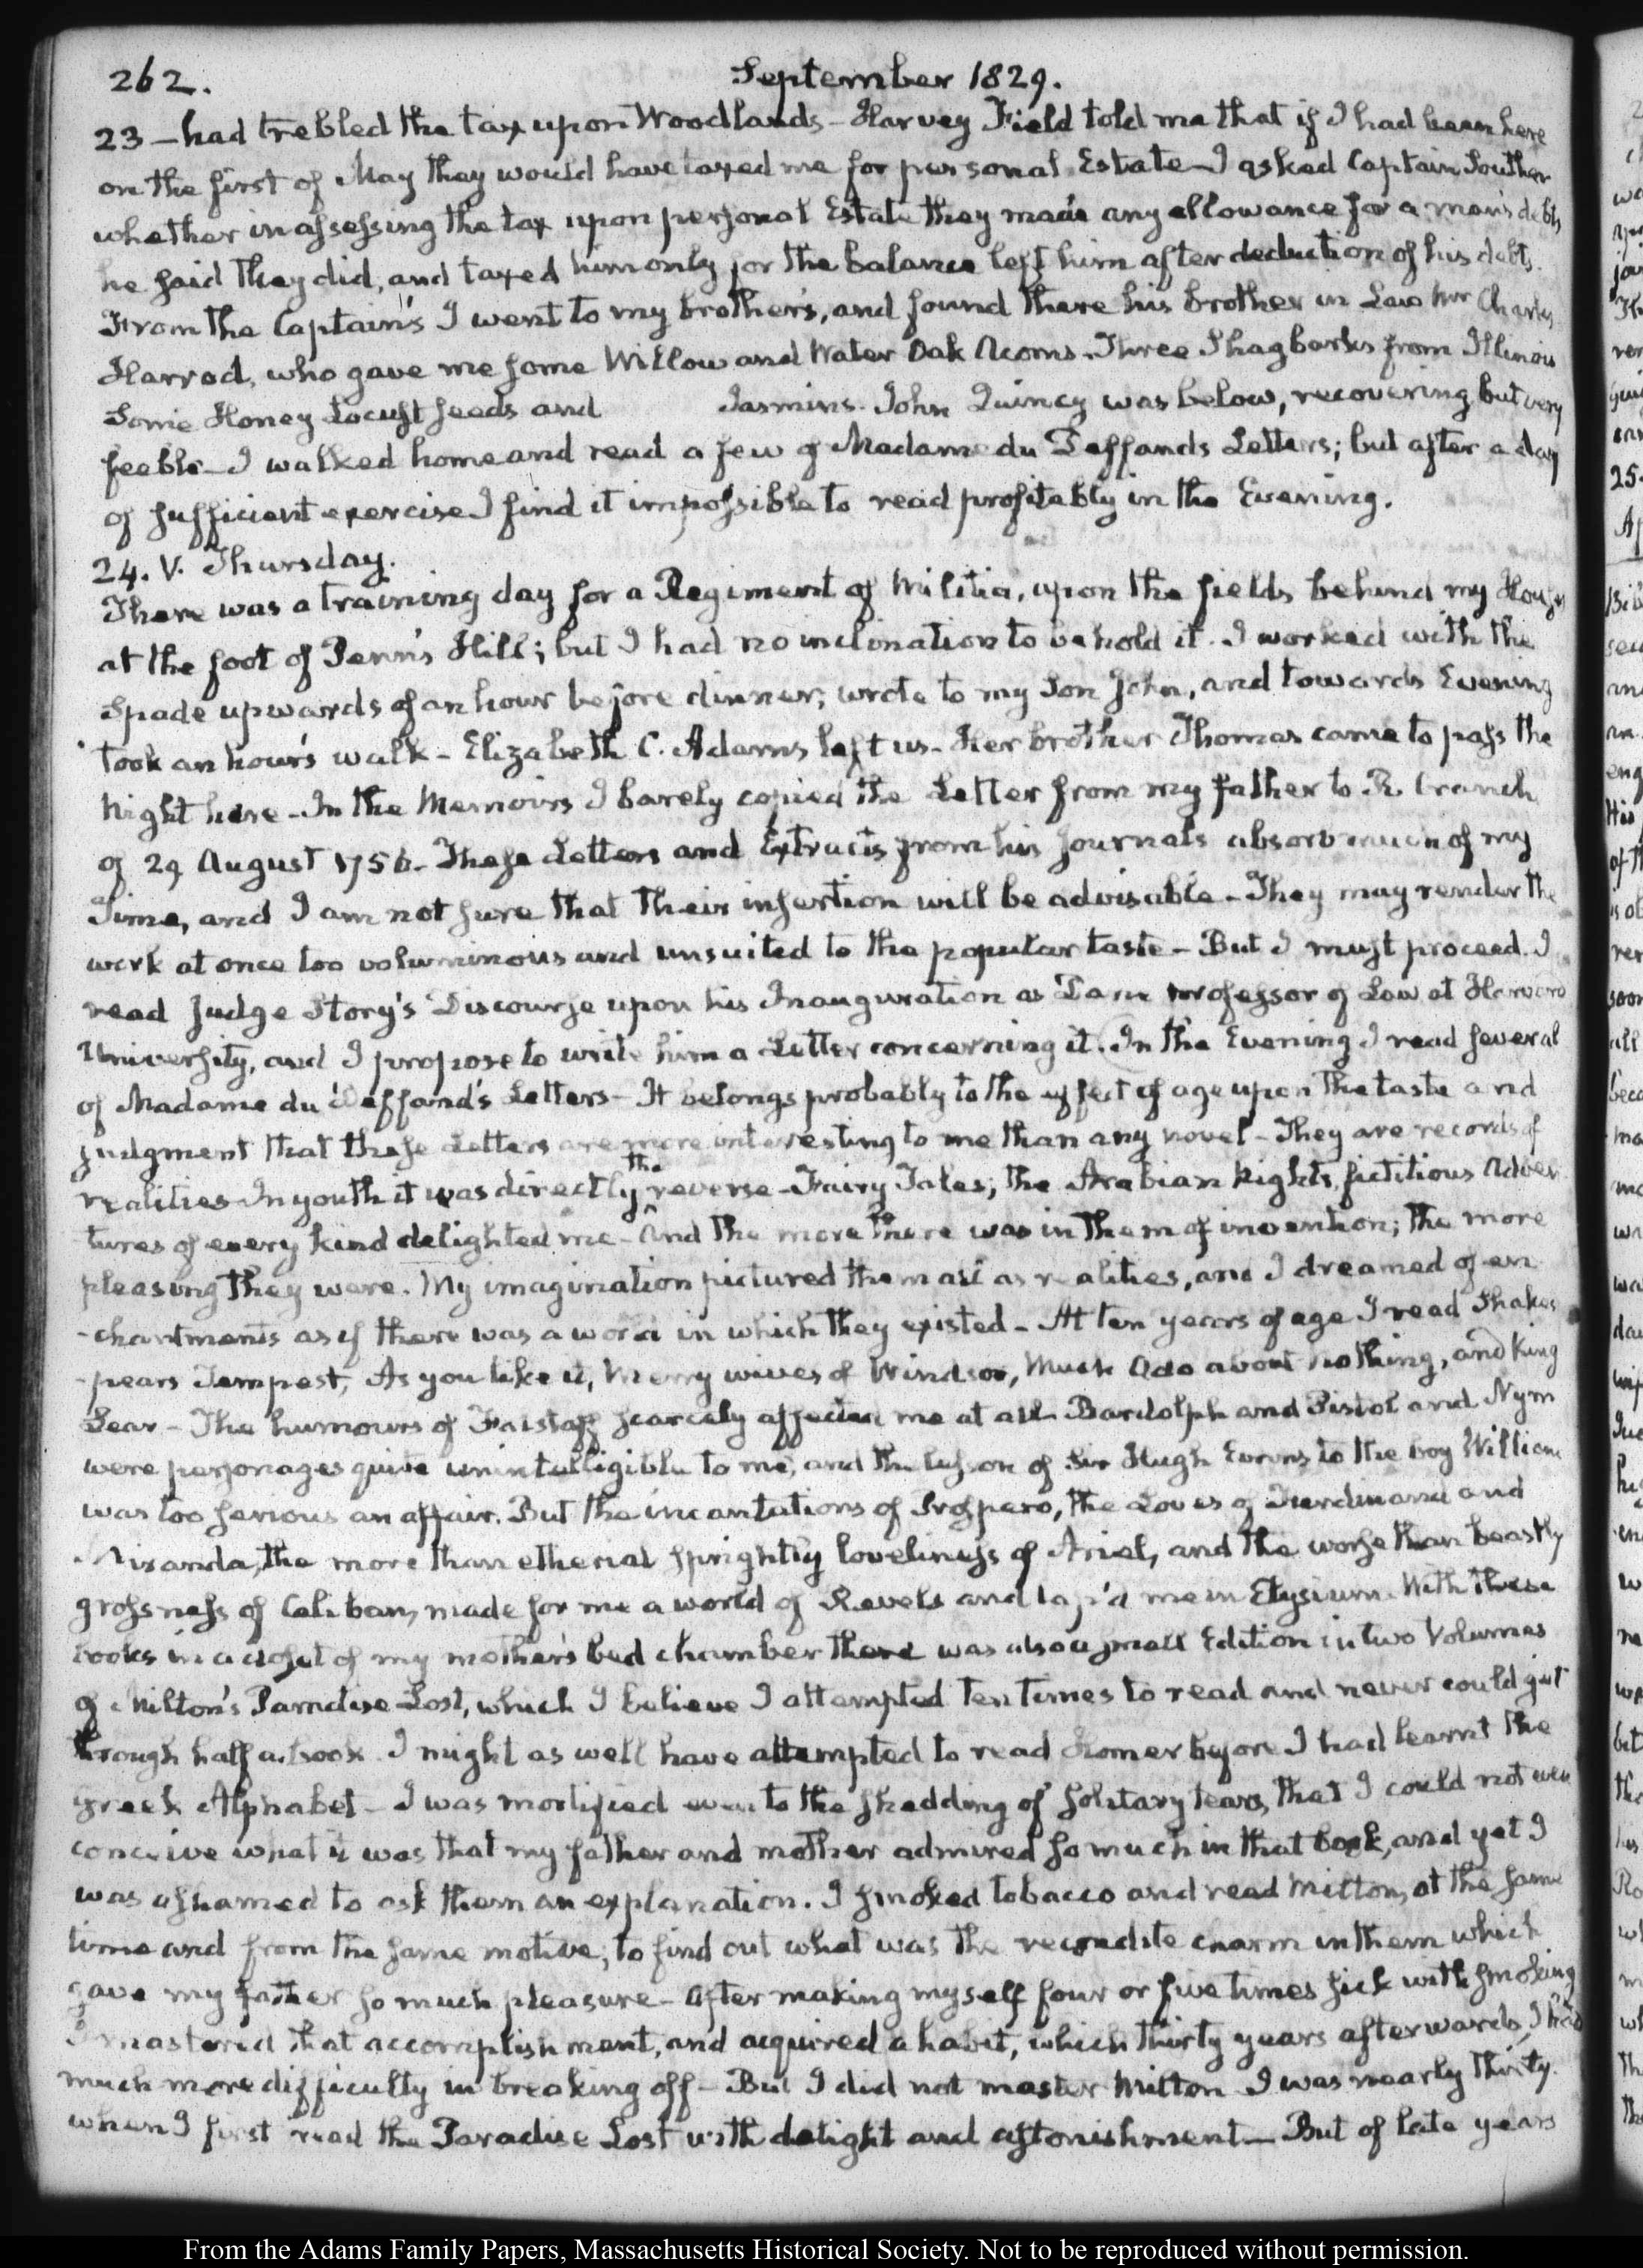 262.
September 1829.
23 – had trebled the tax upon Woodlands – Harvey Field told me that if I had been here
on the first of May they would have taxed me for personal Estate – I asked Captain Souther
whether in assessing the tax upon personal Estate they made any allowance for a man's debts
he said they did, and taxed him only for the balance left him after deduction of his debts.
From the Captain's I went to my brother's, and found there his brother in Law Mr Charles
Harrod, who gave me some Willow and Water Oak Acorns. Three Shagbarks from Illinois
Some Honey Locust seeds and Jasmins. John Quincy was below, recovering but very
feeble – I walked home and read a few of Madame du Deffands Letters; but after a day
of sufficient exercise I find it impossible to read profitably in the Evening.
24. V. Thursday.
There was a training day for a Regiment of Militia, upon the fields behind my House
at the foot of Penn's Hill; but I had no inclination to behold it. I worked with the
Spade upwards of an hour before dinner; wrote to my Son John, and towards Evening
took an hour's walk – Elizabeth C. Adams left us – Her brother Thomas came to pass the
Night here – In the Memoirs I barely copied the Letter from my father to R. Cranch
of 29 August 1756. These Letters and Extracts from his Journals absorb much of my
Time, and I am not sure that their insertion will be advisable – They may render the
work at once too voluminous and unsuited to the popular taste – But I must proceed. I
read Judge Story's Discourse upon his Inauguration as Dane Professor of Law at Harvard
University, and I propose to write him a Letter concerning it. In the Evening I read several
of Madame du Deffand's Letters – It belongs probably to the effect of age upon the taste and
judgment that these Letters are more interesting to me than any novel – They are records of
realities – In youth it was directly the reverse – Fairy Tales, the Arabian Nights, fictitious Adven
tures of every kind delighted me – And the more there was in them of invention; the more
pleasing they were. My imagination pictured them all as realities, and I dreamed of en
-chantments as if there was a world in which they existed – At ten years of age I read Shakes
-pears Tempest, As you like it, Merry wives of Windsor, Much Ado about nothing, and King
Lear – The humours of Falstaff scarcely affected me at all. Bardolph and Pistol and Nym
were personages quite unintelligible to me, and the lesson of Sir Hugh Evans to the boy William
was too serious an affair. But the incantations of Prospero, the Loves of Ferdinand and
Miranda, the more than etherial sprightly loveliness of Ariel, and the worse than beastly
grossness of Caliban, made for me a world of Revels and lap'd me in Elysium. With these
books in a closet of my mother's bed chamber there was also a small Edition in two Volumes
of Milton's Paradise Lost, which I believe I attempted ten times to read and never could get
through half a book. I might as well have attempted to read Homer before I had learnt the
Greek Alphabet – I was mortified even to the shedding of solitary tears, that I could not even
conceive what it was that my father and mother admired so much in that book, and yet I
was ashamed to ask them an explanation. I smoked tobacco and read Milton, at the same
time and from the same motive; to find out what was the recondite charm in them which
gave my father so much pleasure – After making myself four or five times sick with smoking
I mastered that accomplishment, and acquired a habit, which thirty years afterwards, I had
much more difficulty in breaking off – But I did not master Milton. I was nearly thirty.
when I first read the Paradise Lost with delight and astonishment – But of late years
From the Adams Family Papers, Massachusetts Historical Society. Not to be reproduced without permission.